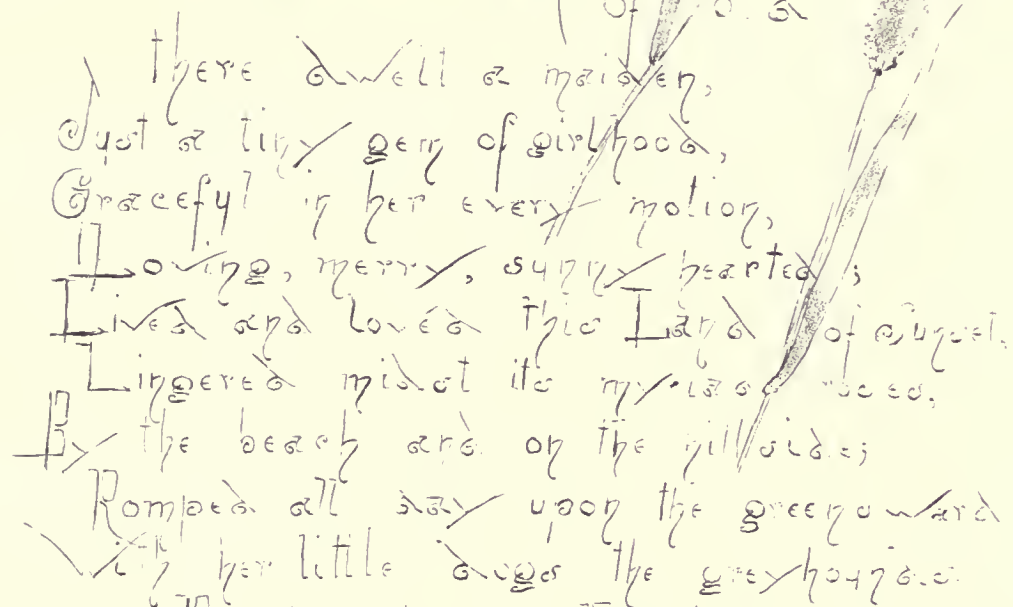 There dwelt a maiden,
Just a tiny gem of girlhood,
Graceful in her every motion,
Loving, merry, sunny hearted;
Lived and loved this Land of Sunset,
Lingered midst its myriad roses,
By the beach and on the hillside;
Romped all day upon the greensward
With her little dogs the greyhounds.